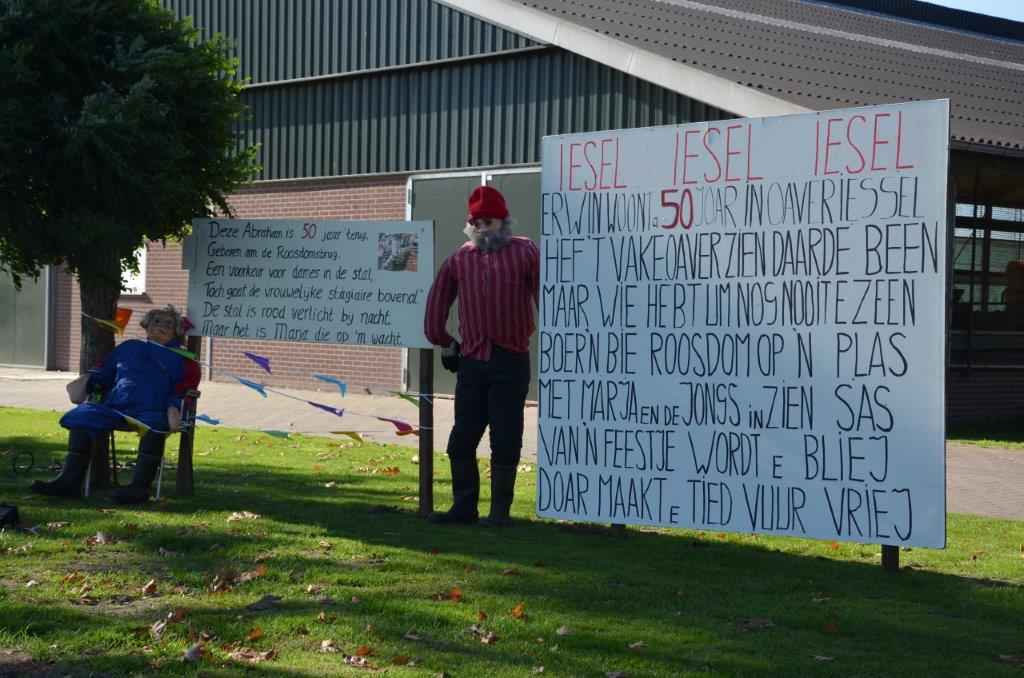 Deze Abraham is 50 jaar terug,
Geboren aan de Roosdomsbrug.
Een voorkeur voor dames in de stal,
Toch gaat de vrouwelijke stagiaire bovenal.
De stal is rood verlicht bij nacht.
Maar het is Marja die op 'm wacht.
IESEL IESEL IESEL
ERWIN WOONT a 50 JOAR IN OAVERIESSEL
HEF 'T VAKE OAVER ZIEN DAARDE BEEN
MAAR WIE HEBT UM NOG NOOIT E ZEEN
BOER'N BIE ROOSDOM OP 'N PLAS
MET MARJA EN DE JONGS in ZIEN SAS
VAN 'N FEESTJE WORDT E BLIEJ
DOAR MAAKT E TIED VUUR VRIEJ